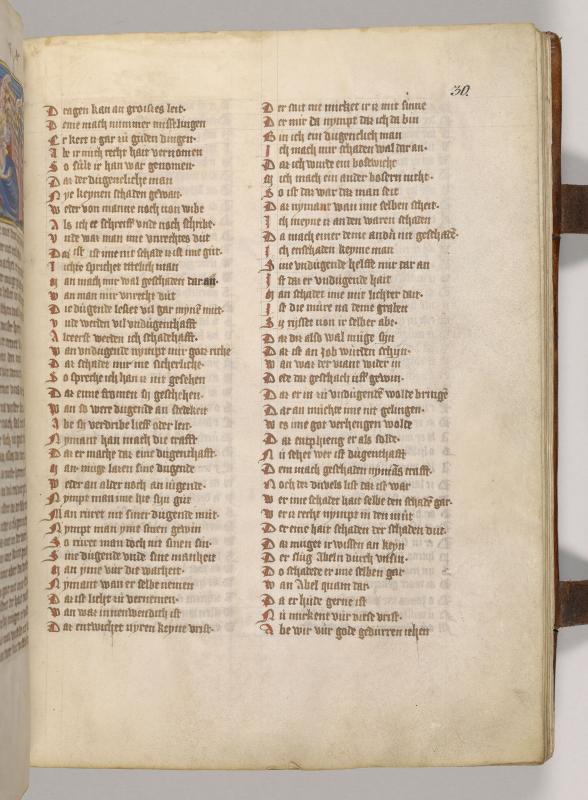 30.
Dragen kan an groisses leit.
Deme mach nummer misslingen
Er kert is gar zu guden dingen.
Abe ir mich recht hait vernomen
So sule ir han war genomen.
Daz der dugentliche man
Nye keynen schaden gewan.
Weder von manne noch von wibe
Als ich es schreiff vnde noch schribe.
Vnde was man ime vnrechtes dut
Daz ist ime nit schade is ist ime gut.
Lichte sprichet etelich man
Man mach mir wal geschaden dar an.
Wan man mir vnrecht dut
Die dugende lesset vil gar mynen mut.
Vnde werden vil vndugenthafft
Alreerst werden ich schadehafft.
Wan vndugende nympt mir gotz riche
Daz schadet mir me sicherliche.
So spreche ich han is nit gesehen
Daz eime fromen sy geschehen.
Wan so were dugende an stedekeit
Abe sy verdribe lieff oder leit.
Nymant kan mach die crafft
Daz er mache daz eine dugenthafft.
Man muge lazen sine dugende
Weder an alder noch an iugende.
Nympt man ime hie sin gut
Man ruret nit siner dugende mut.
Nympt man yme sinen gewin
So ruret man doch nit sinen sin.
Sine dugende vnde sine manheit
Man yme vur die warheit.
Nymant wan er selbe nemen
Daz ist licht zu vernemen.
Wan waz innenwendich ist
Daz entwichet vyren keyne vrist.
Der sait nit mirket ir is mit sinne
Der mir da nympt daz ich da bin
Bin ich ein dugentlich man
Ich mach mir schaden wal dar an.
Daz ich wurde ein bosewicht
Mich mach ein ander bosern nicht.
So ist daz war daz man seit
Daz nymant wan ime selben scheit.
Ich meyne is an den waren schaden
Da mach einer deme andern nit geschaden.
Ich enschaden keyme man
Sine vndugende helffe mir dar an
Ist daz er vndugende hait
Man schadet ime mit lichter dait.
Ist die mure na deme graben
Sy rysset von ir selber abe.
Daz dir also wal muge syn
Daz ist an Job wurden schyn.
Wan waz der viant wider in
Dede daz geschach uff gewin.
Daz er in zu vndugenden wolde bringen
Dar an muchte ime nit gelingen.
Wes ime got verhengen wolde
Daz entphieng er als solde.
Nu sehet wer ist dugenthafft
Dem mach geschaden nymans crafft.
Noch des divels list daz ist war
Wer ime schadet hait selbe den schaden gar.
Wer is recht nympt in den mut
Der eine hait schaden der schaden dut.
Daz muget ir wissen an keyn
Der slug Abeln durch vnsin.
Do schadete er ime selben gar
Wan Abel quam dar.
Da er hude gerne ist
Nu mirkent vur diese vrist.
Abe wir vur gode gedurren iehen